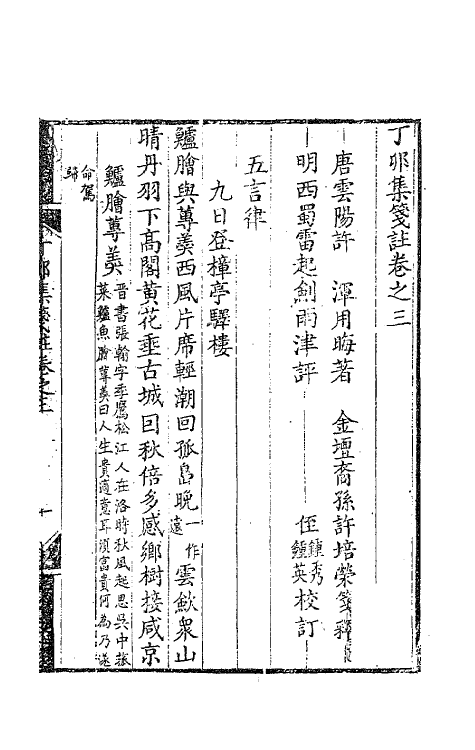 丁卯集箋註卷之三
唐雲陽許　渾用晦著　金壇裔孫許培榮箋釋
明西蜀雷起劍雨津評　侄鍾秀鍾英校訂
五言律
九日登樟亭驛樓
鱸膾與蓴羮西風片席輕潮回孤島晚一作遠雲歛衆山
晴丹羽下高閣黄花垂古城因秋倍多感鄉樹接咸京
鱸膾蓴羮　晋書張翰字季鷹松江人在洛時秋風起思吳中菰
菜鱸魚膾蓴羮曰人生貴適意耳須富貴何為乃遂
命駕
歸
丁卯集箋註卷之三　一